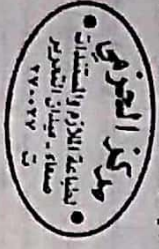 مركز الحزمي
لطباعة الملازم والمستندات
صنعاء - ميدان التحرير
ت